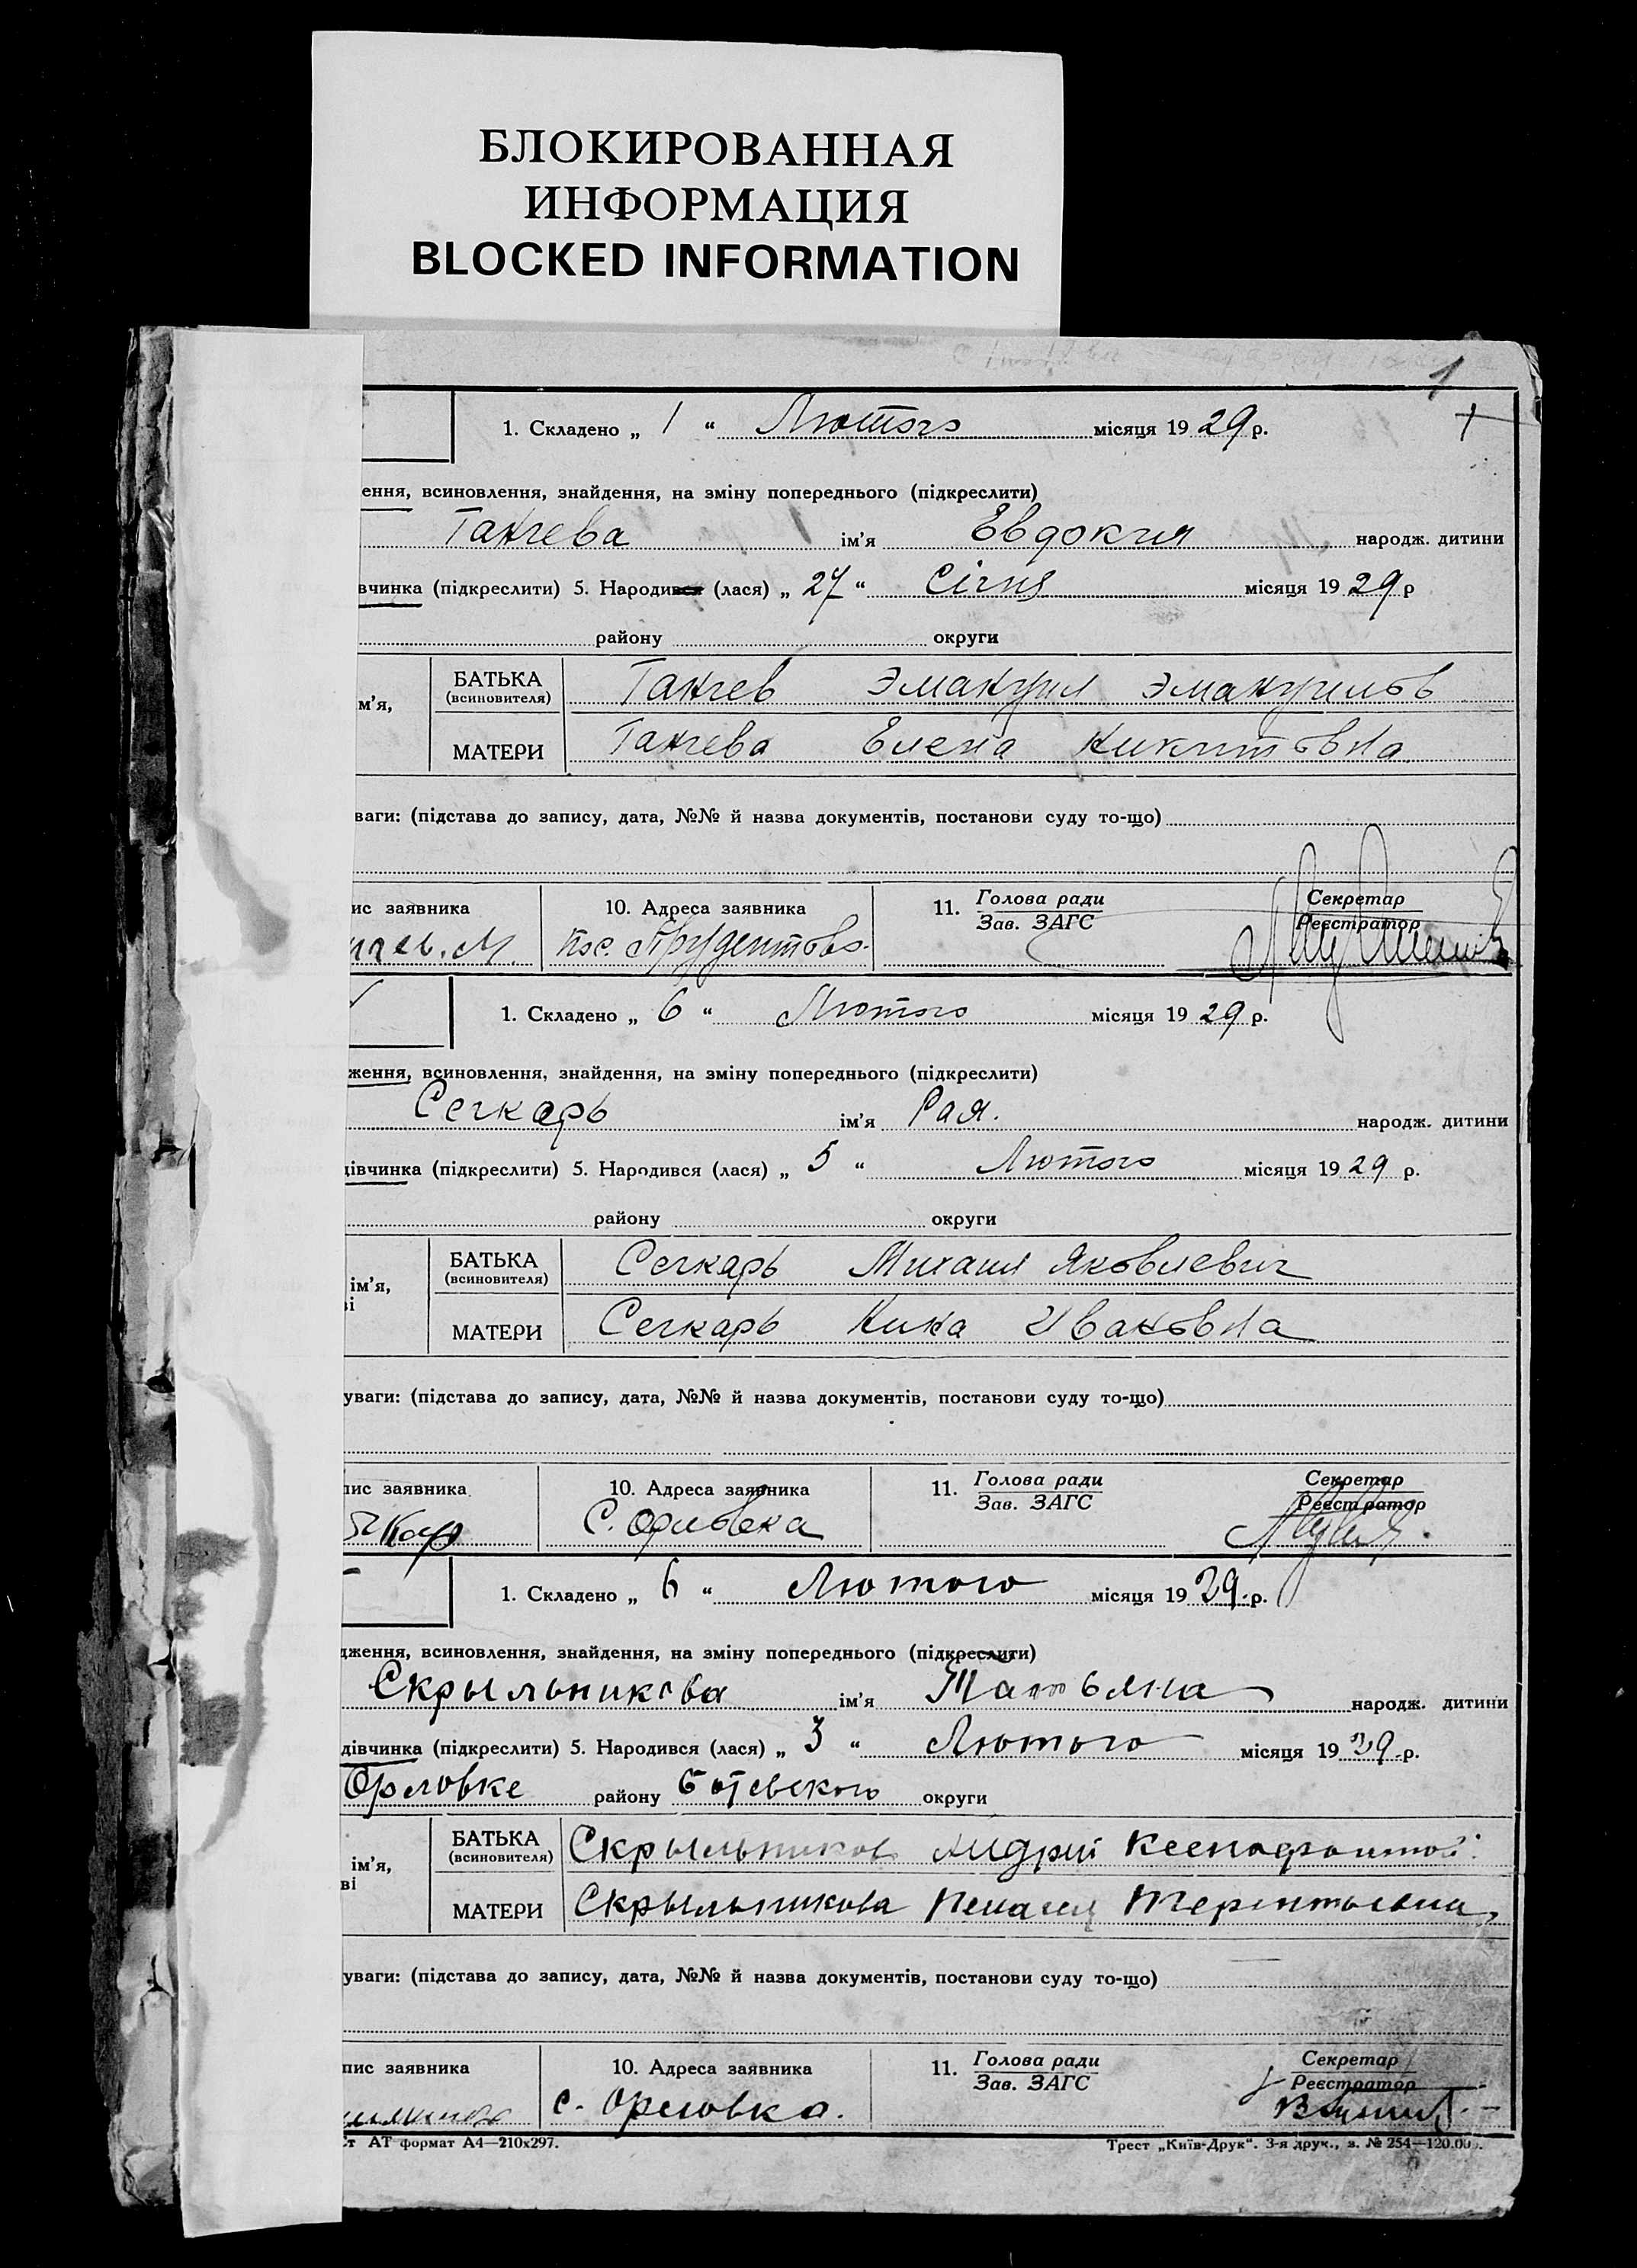 БЛОКИРОВАННАЯ
ИНФОРМАЦИЯ
BLOCKED INFORMATION
1
1. Складено „ 1 “ Лютого місяця 1929 р.
ення, всиновлення, знайдення, на зміну попереднього (підкреслити)
Ганчева ім'я Евдокия народж. дитини
вчинка (підкреслити) 5. Народився (лася) „ 27 “ Січня місяця 1929 р
району округи
м'я, БАТЬКА (всиновителя) Ганчев Эмануил Эмануилов
МАТЕРИ Ганчева Елена Никитовна
ваги: (підстава до запису, дата, №№ й назва документів, постанови суду то-що)
ис заявника 10. Адреса заявника 11. Голова ради Зав. ЗАГС Секретар Реєстратор
нчев. М. пос.
1. Складено „ 6 “ Лютого місяця 1929 р.
ження, всиновлення, знайдення, на зміну попереднього (підкреслити)
Сечкарь ім'я Рая. народж. дитини
дівчинка (підкреслити) 5. Народився (лася) „ 5 “ Лютого місяця 1929 р.
району округи
ім'я, БАТЬКА (всиновителя) Сечкарь Михаил Яковлевич
і МАТЕРИ Сечкарь Нина Ивановна
уваги: (підстава до запису, дата, №№ й назва документів, постанови суду то-що)
пис заявника 10. Адреса заявника 11. Голова ради Зав. ЗАГС Секретар Реєстратор
С. Орловка
1. Складено „ 6 “ Лютого місяця 1929 р.
дження, всиновлення, знайдення, на зміну попереднього (підкреслити)
Скрыльникова ім'я Татьяна народж. дитини
дівчинка (підкреслити) 5. Народився (лася) „ 3 “ Лютого місяця 1929 р.
Орловке району Ботевского округи
ім'я, БАТЬКА (всиновителя) Скрыльников Андрей Ксенофонтов
ві МАТЕРИ Скрыльникова Пелагея Терентьевна
уваги: (підстава до запису, дата, №№ й назва документів, постанови суду то-що)
пис заявника 10. Адреса заявника 11. Голова ради Зав. ЗАГС Секретар Реєстратор
с. Орловка.
Ст АТ формат А4—210х297. Трест „Київ-Друк“. 3-я друк., з. № 254—120.00